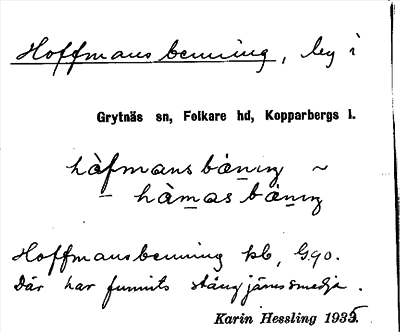 Hoffmansbenning, by i
Grytnäs sn, Folkare hd, Kopparbergs l.
hàfmansbäniŋ ~
hàmasbäniŋ
Hoffmansbenning kb, G90.
Där har funnits stångjärnssmedja.
Karin Hessling 1935.